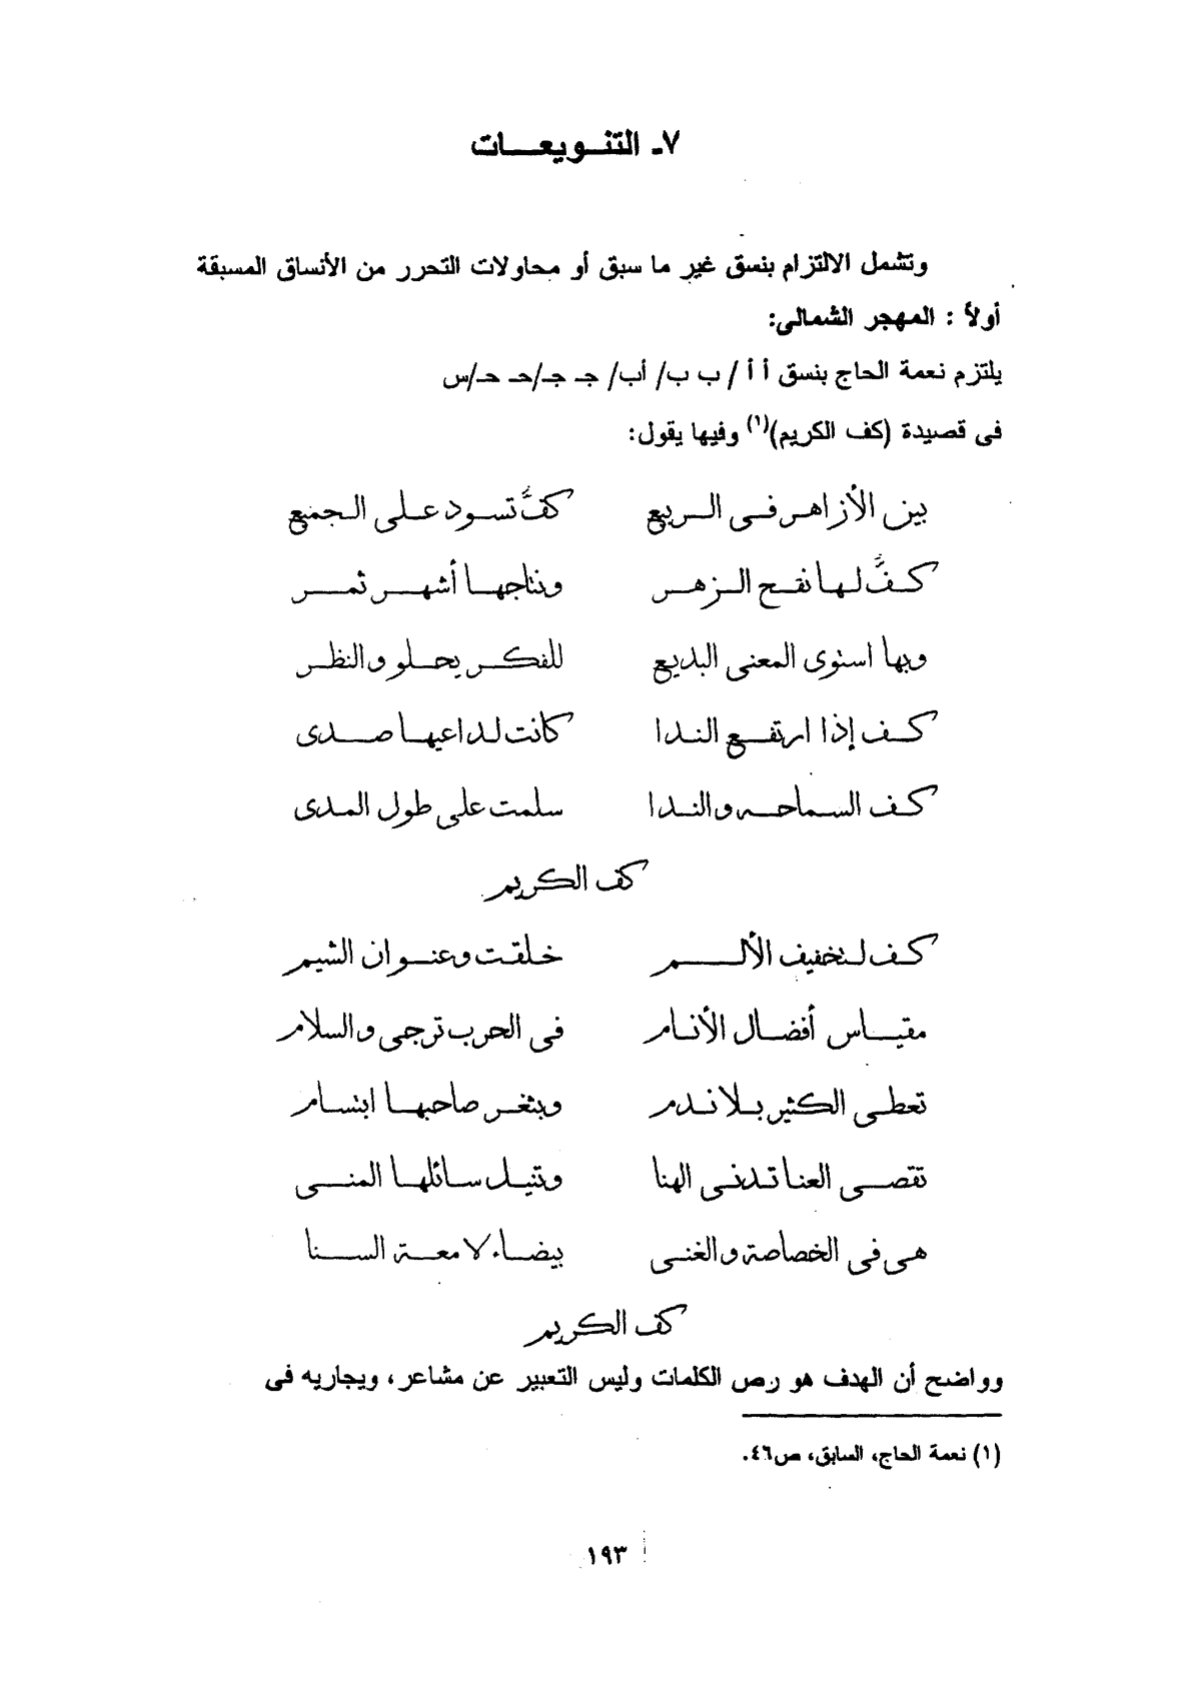 ٧ـ التنويعات
وتشمل الالتزام بنسق غير ما سبق أو محاولات التحرر من الأنساق المسبقة
أولاً : المهجر الشمالى:
يلتزم نعمة الحاج بنسق أ أ / ب ب/ أب/ جـ جـ/حـ حـ/س
فى قصيدة (كف الكريم)(١) وفيها يقول:
بين الأزاهر فى الربيع كفٌّ تسود على الجميع
كفٌّ لها نفح الزهر ونتاجها أشهر ثمر
وبها استوى المعنى البديع للفكر يحلو والنظر
كف إذا ارتفع الندا كانت لداعيها صدى
كف السماحه والندا سلمت على طول المدى
كف الكريم
كف لتخفيف الألم خلقت وعنوان الشيم
مقياس أفضال الأنام فى الحرب ترجى والسلام
تعطى الكثير بلا ندم وبثغر صاحبها ابتسام
تقصى العنا تدنى الهنا وتنيل سائلها المنى
هى فى الخصاصة والغنى بيضاء لامعة السنا
كف الكريم
وواضح أن الهدف هو رص الكلمات وليس التعبير عن مشاعر، ويجاريه فى
(١) نعمة الحاج، السابق، ص٤٦.
١٩٣